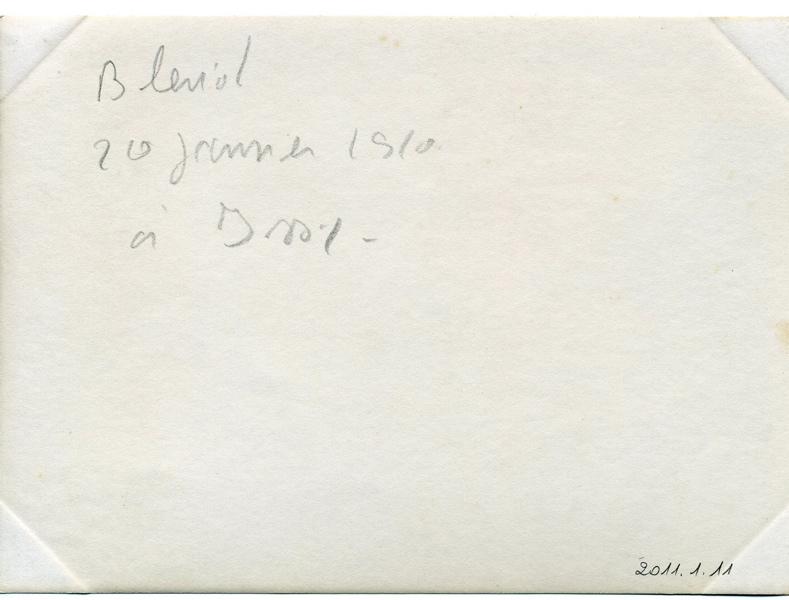 Bleriot
20 janvier 1910
à Issy -
2011.1.11